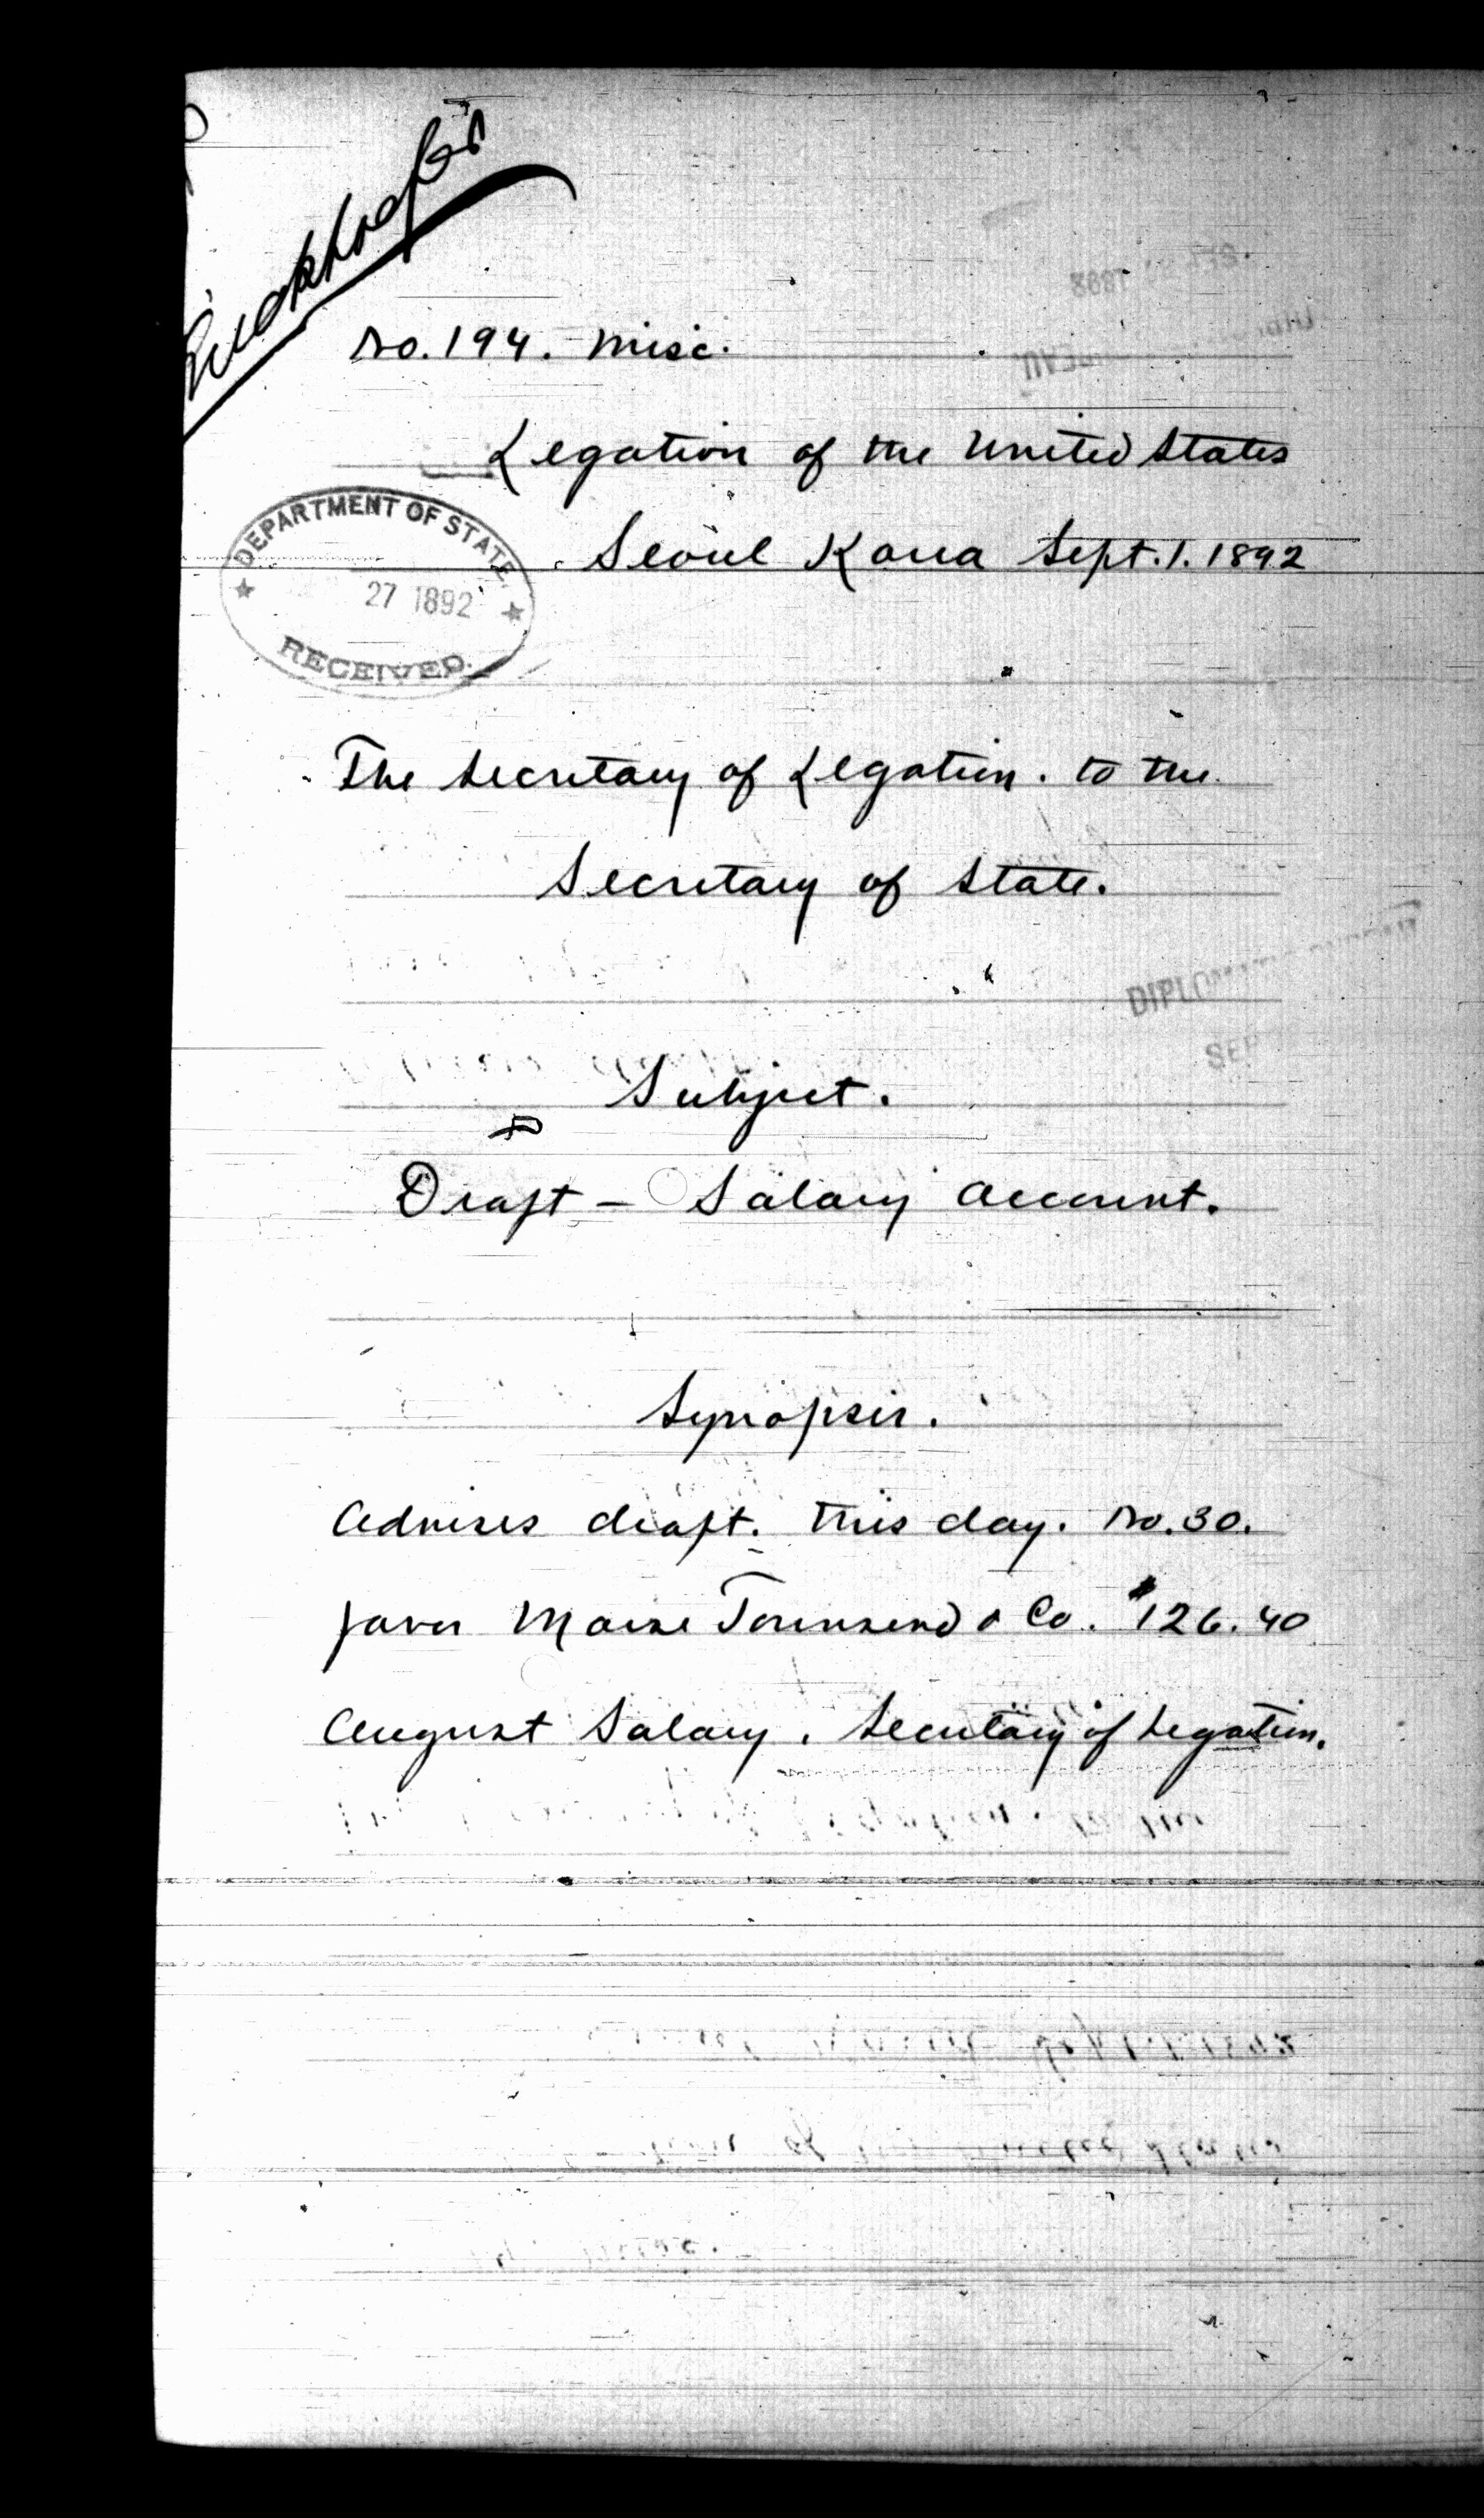 No. 194. Misc.
Legation of the United States
Seoul Korea Sept. 1. 1892
DEPARTMENT OF STATE
27 1892
RECEIVED.
The Secretary of Legation. to the
Secretary of State.
DIPLOMATIC
SEP
Subject.
Draft - Salary account.
Synopsis.
Advises draft. this day. No. 30.
favor Morse Townsend & Co. $126.40
August Salary. Secretary of Legation.